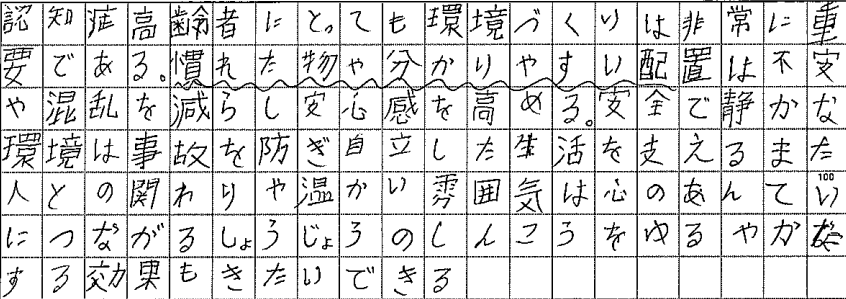 認知症高齢者にとっても環境づくりは非常に重
要である。慣れた物や分かりやすい配置は不安
や混乱を減らし安心感を高める。安全で静かな
環境は事故を防ぎ自立した生活を支えるまた
人との関わりや温かい雰囲気は心のあんてい
につながるしょうじょうのしんこうをゆるやかに
する効果もきたいできる
100